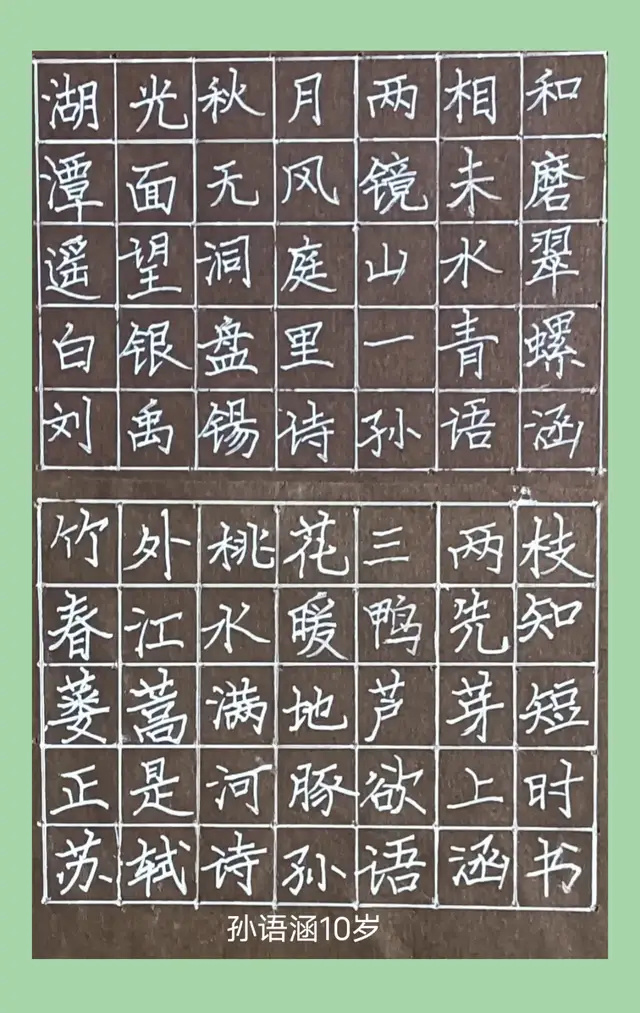 湖光秋月两相和
潭面无风镜未磨
遥望洞庭山水翠
白银盘里一青螺
刘禹锡诗孙语涵
竹外桃花三两枝
春江水暖鸭先知
蒌蒿满地芦芽短
正是河豚欲上时
苏轼诗孙语涵书
孙语涵10岁